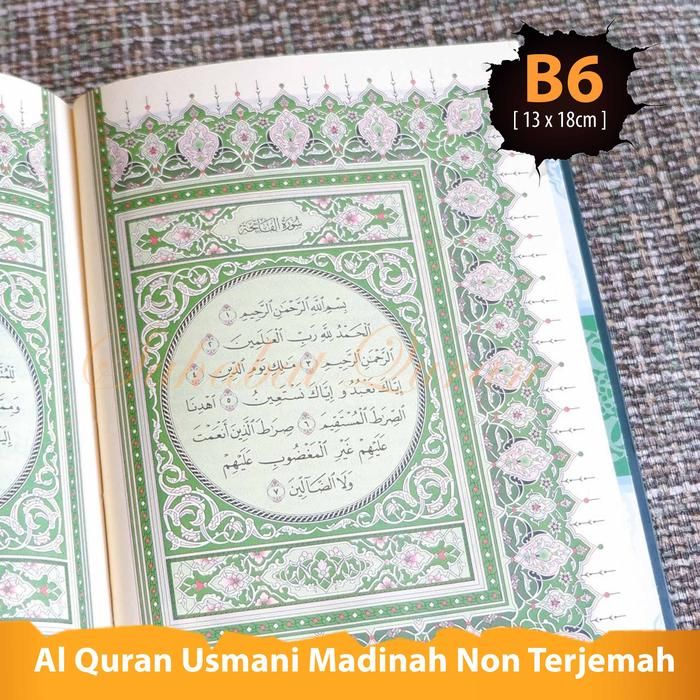 B6
[ 13 x 18cm ]
سُورَةُ الفَاتِحَةِ
بِسْمِ ٱللَّهِ ٱلرَّحْمَٰنِ ٱلرَّحِيمِ ١
ٱلْحَمْدُ لِلَّهِ رَبِّ ٱلْعَٰلَمِينَ ٢
ٱلرَّحْمَٰنِ ٱلرَّحِيمِ ٣ مَٰلِكِ يَوْمِ ٱلدِّينِ ٤
إِيَّاكَ نَعْبُدُ وَإِيَّاكَ نَسْتَعِينُ ٥ ٱهْدِنَا
ٱلصِّرَٰطَ ٱلْمُسْتَقِيمَ ٦ صِرَٰطَ ٱلَّذِينَ أَنْعَمْتَ
عَلَيْهِمْ غَيْرِ ٱلْمَغْضُوبِ عَلَيْهِمْ
وَلَا ٱلضَّآلِّينَ ٧
Sahabat Quran
Al Quran Usmani Madinah Non Terjemah